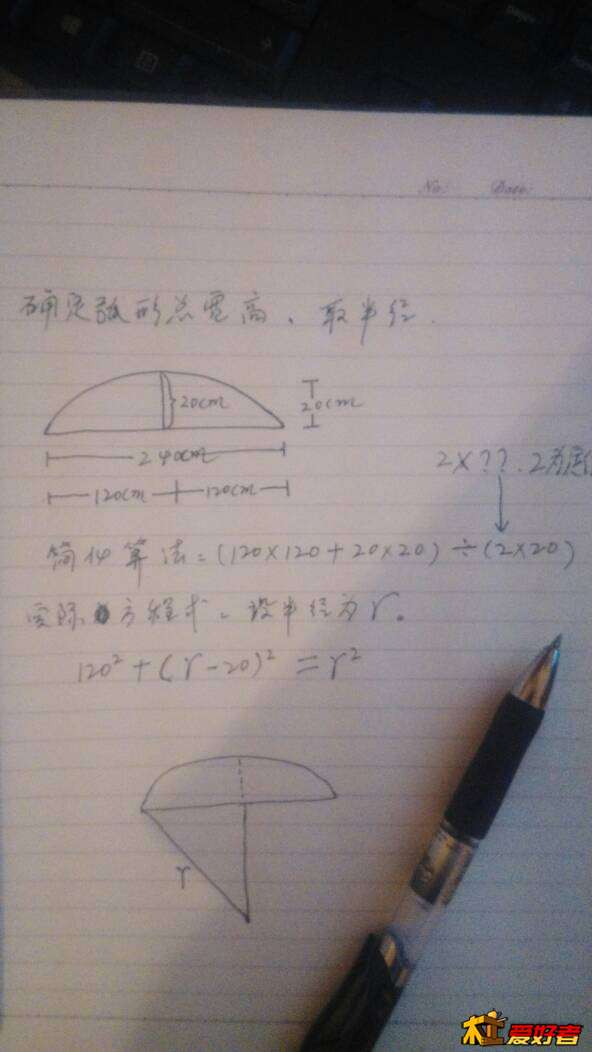 No: Date:
确定弧形总宽高、取半径.
20cm
20cm
240cm
2×??.2为定
120cm 120cm
简化算法=(120×120+20×20)÷(2×20)
实际方程式、设半径为r。
120²+(r-20)²=r²
r
木工爱好者